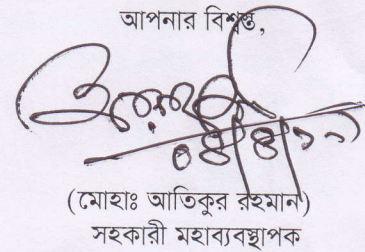 আপনার বিশ্বস্ত,
(মোহাঃ আতিকুর রহমান)
সহকারী মহাব্যবস্থাপক